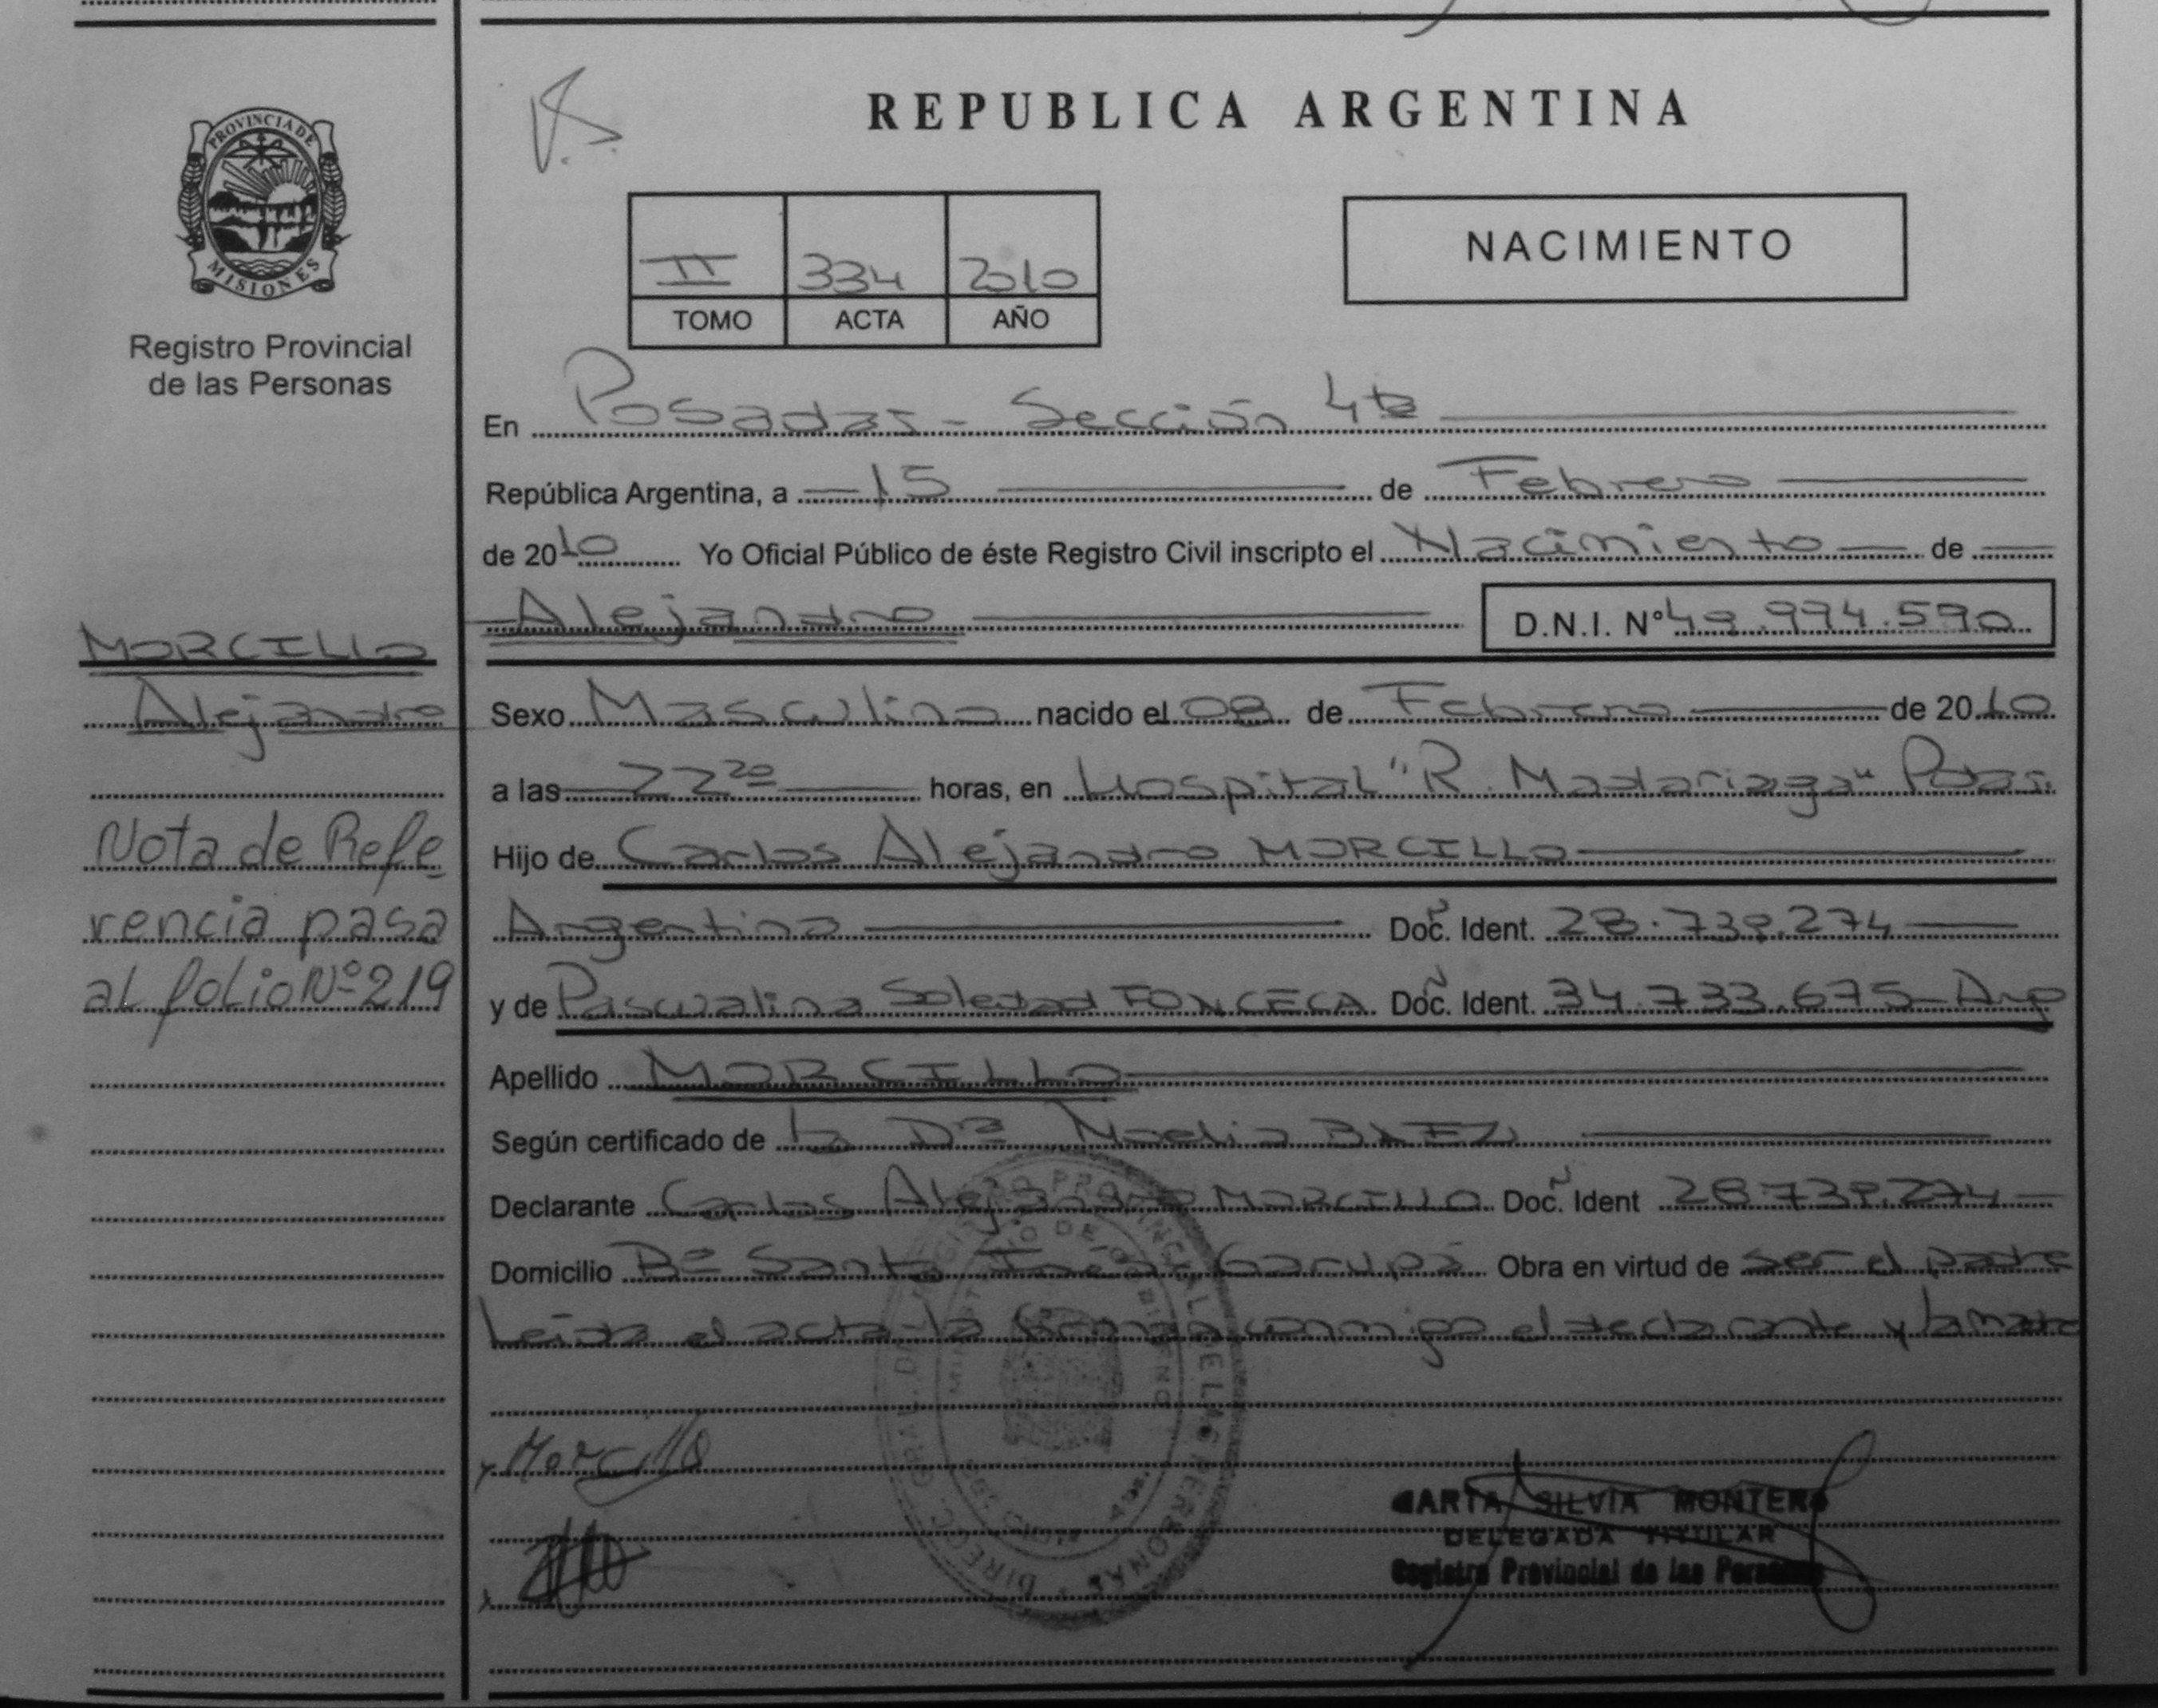 REPUBLICA ARGENTINA
PROVINCIA DE
MISIONES
Registro Provincial
de las Personas
II 334 2010
TOMO ACTA AÑO
NACIMIENTO
En Posadas - Sección 4ta
República Argentina, a 15 de Febrero
de 2010 Yo Oficial Público de éste Registro Civil inscripto el Nacimiento de
Alejandro D.N.I. Nº 49.994.590
MORCILLO
Alejandro
Nota de Refe
rencia pasa
al folio Nº 219
Sexo Masculino nacido el 08 de Febrero de 2010
a las 22 20 horas, en Hospital "R. Madariaga" Pdas.
Hijo de Carlos Alejandro MORCILLO
Argentino Doc. Ident. 28.739.274
y de Pascualina Soledad FONCECA Doc. Ident. 34.733.675 - Arg
Apellido MORCILLO
Según certificado de la Dra Noelia BAEZ
Declarante Carlos Alejandro MORCILLO Doc. Ident 28.739.274
Domicilio Bº Santa Inés Garupá Obra en virtud de ser el padre
Leída el acta la firman conmigo el declarante y la madre
Morcillo
MARTA SILVIA MONTERO
DELEGADA TITULAR
Registro Provincial de las Personas